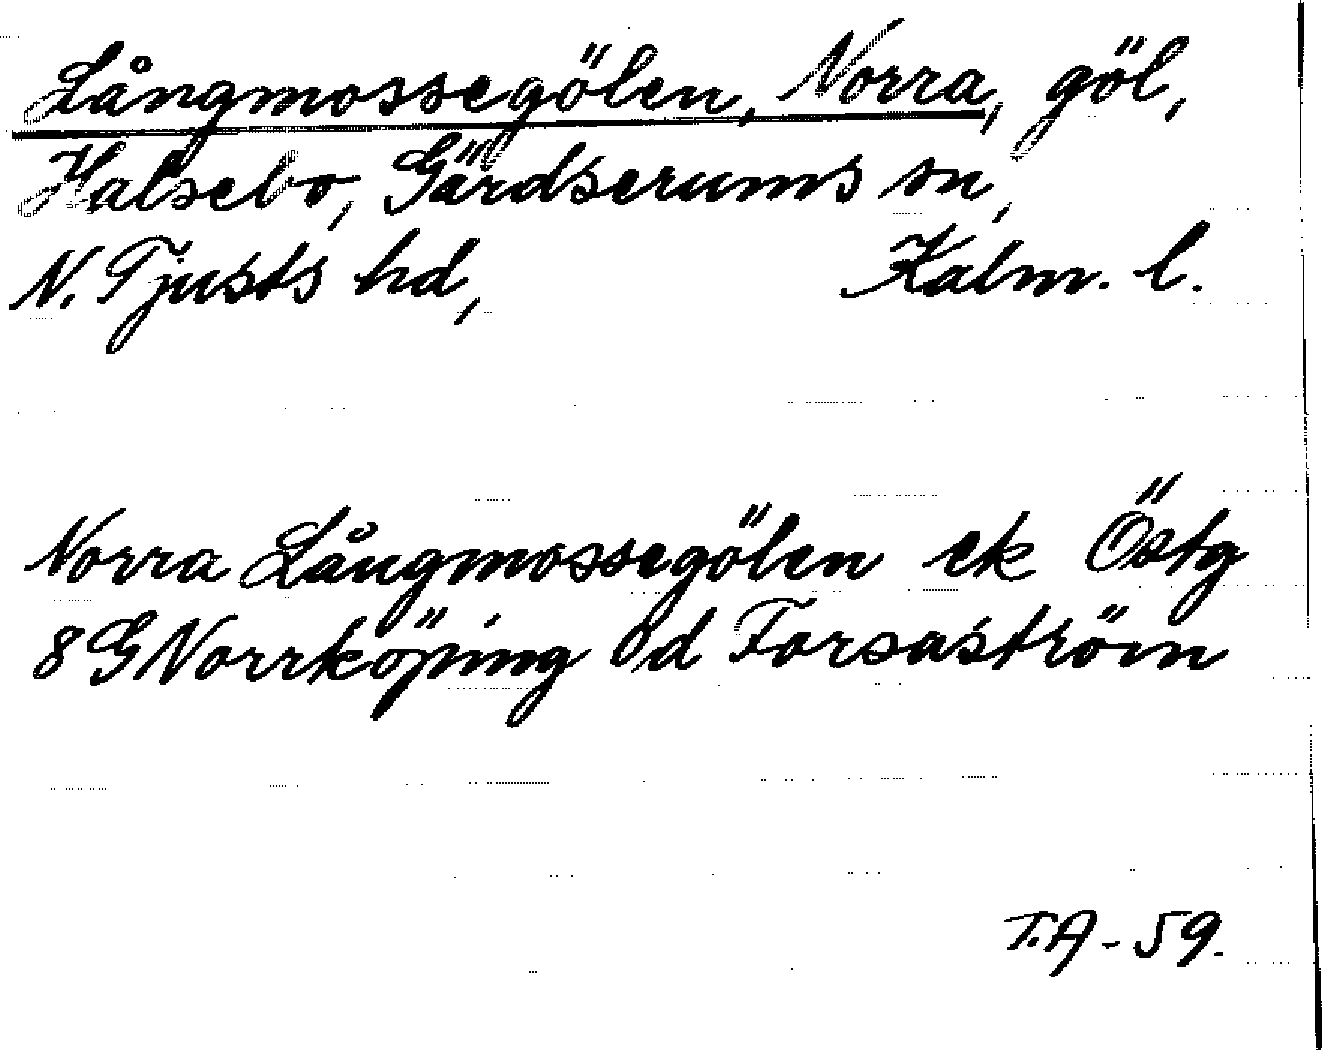 Långmossegölen, Norra, göl,
Halsebo, Gärdserums sn,
N. Tjusts hd, Kalm. l.
Norra Långmossegölen ek Östg
8 G Norrköping 0d Forsaström
T.A-59.